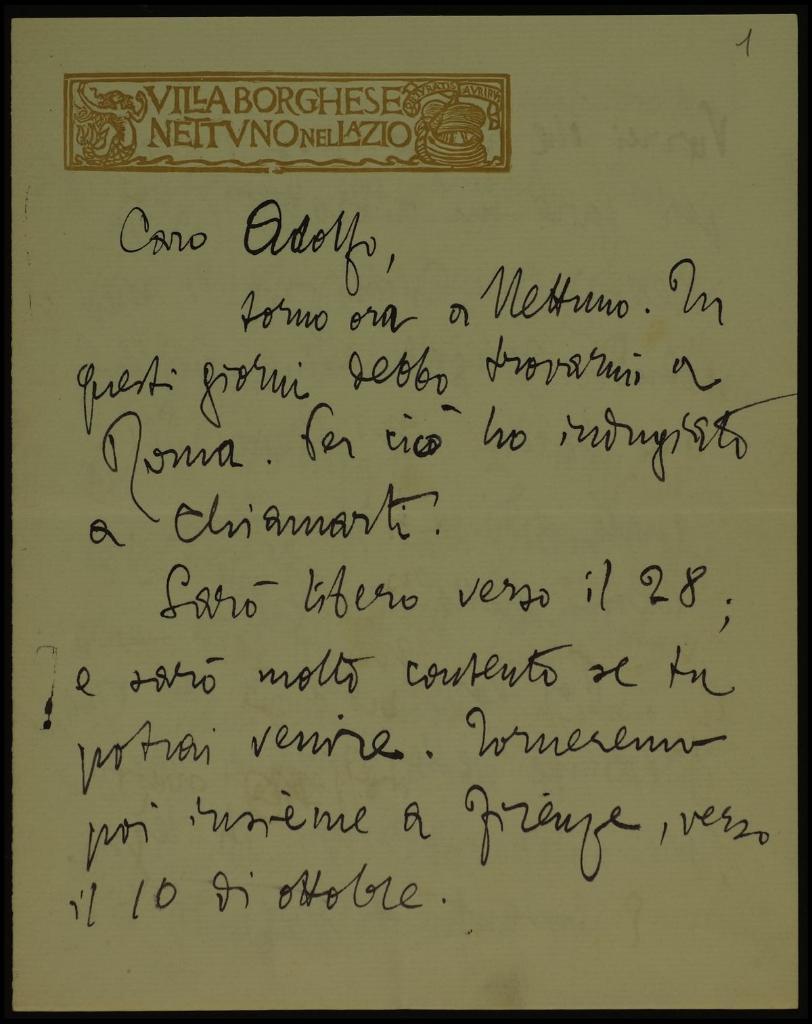 1
VILLA BORGHESE
NETTVNO NEL LAZIO
Caro Adolfo,
torno ora a Nettuno. In
questi giorni debbo trovarmi a
Roma. Per ciò ho indugiato
a chiamarti.
Sarò libero verso il 28;
e sarò molto contento se tu
potrai venire. Torneremo
poi insieme a Firenze, verso
il 10 di ottobre.